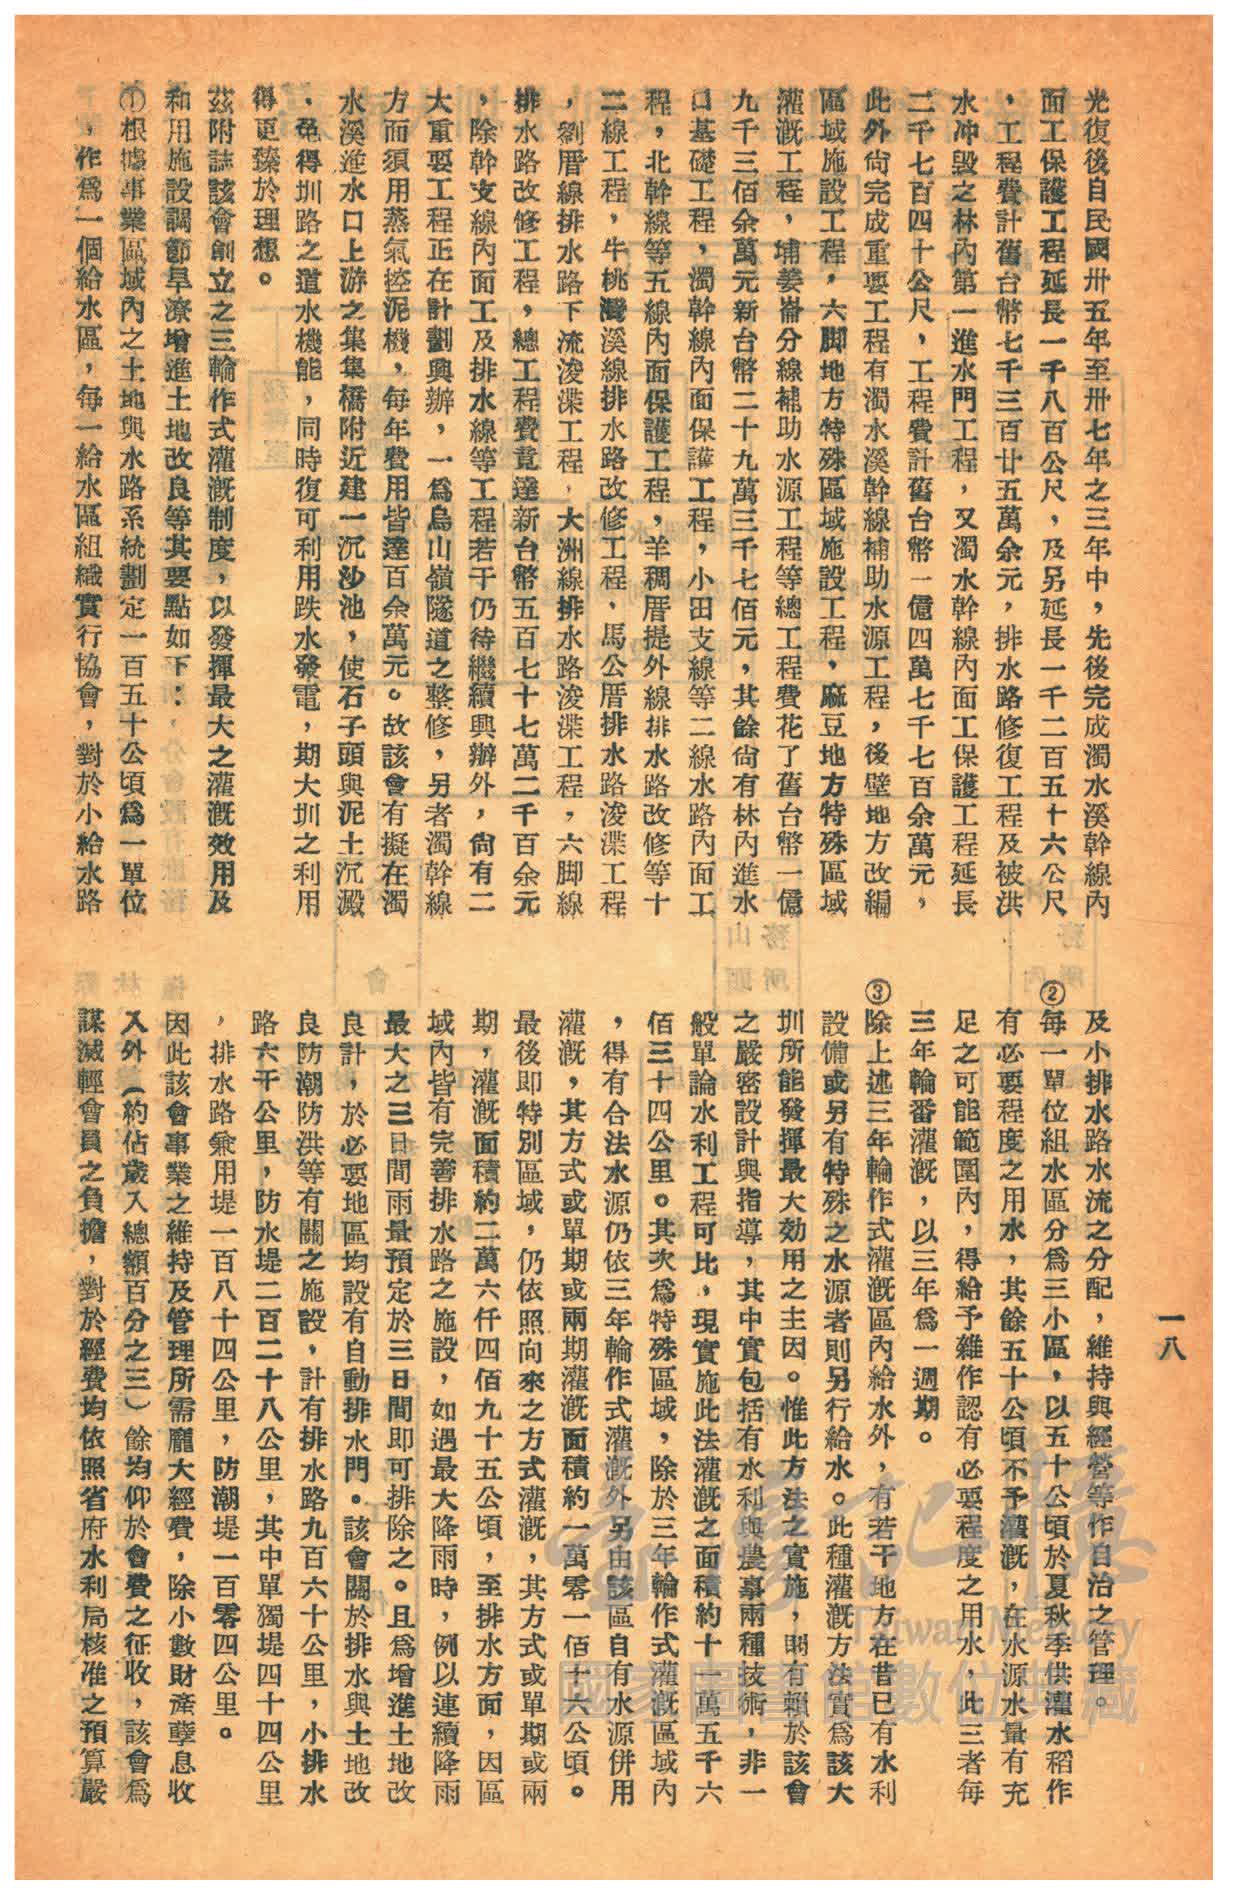 光復後自民國卅五年至卅七年之三年中，先後完成濁水溪幹線內
面工保護工程延長一千八百公尺，及另延長一千二百五十六公尺
，工程費計舊台幣七千三百廿五萬余元，排水路修復工程及被洪
水冲毀之林內第一進水門工程，又濁水幹線內面工保護工程延長
二千七百四十公尺，工程費計舊台幣一億四萬七千七百余萬元，
此外尙完成重要工程有濁水溪幹線補助水源工程，後壁地方改編
區域施設工程，六脚地方特殊區域施設工程，麻豆地方特殊區域
灌漑工程，埔姜崙分線補助水源工程等總工程費花了舊台幣一億
九千三佰余萬元新台幣二十九萬三千七佰元，其餘尙有林內進水
口基礎工程，濁幹線內面保護工程，小田支線等二線水路內面工
程，北幹線等五線內面保護工程，羊稠厝提外線排水路改修等十
二線工程，牛桃灣溪線排水路改修工程、馬公厝排水路浚渫工程
，劉厝線排水路下流浚渫工程，大洲線排水路浚渫工程，六脚線
排水路改修工程，總工程費竟達新台幣五百七十七萬二千百余元
，除幹支線內面工及排水線等工程若干仍待繼續興辦外，尙有二
大重要工程正在計劃興辦，一爲烏山嶺隧道之整修，另者濁幹線
方面須用蒸氣挖泥機，每年費用皆達百余萬元。故該會有擬在濁
水溪進水口上游之集集橋附近建一沉沙池，使石子頭與泥土沉澱
，免得圳路之道水機能，同時復可利用跌水發電，期大圳之利用
得更臻於理想。
茲附誌該會創立之三輪作式灌漑制度，以發揮最大之灌漑效用及
和用施設調節旱潦增進土地改良等其要點如下：
①根據事業區域內之土地與水路系統劃定一百五十公頃爲一單位
，作爲一個給水區，每一給水區組織實行協會，對於小給水路
及小排水路水流之分配，維持與經營等作自治之管理。
②每一單位組水區分爲三小區，以五十公頃於夏秋季供灌水稻作
有必要程度之用水，其餘五十公頃不予灌漑，在水源水量有充
足之可能範圍內，得給予雜作認有必要程度之用水，此三者每
三年輪番灌漑，以三年爲一週期。
③除上述三年輪作式灌漑區內給水外，有若干地方在昔已有水利
設備或另有特殊之水源者則另行給水。此種灌漑方法實爲該大
圳所能發揮最大効用之主因。惟此方法之實施，明有賴於該會
之嚴密設計與指導，其中實包括有水利與農事兩種技術，非一
般單論水利工程可比，現實施此法灌漑之面積約十一萬五千六
佰三十四公里。其次爲特殊區域，除於三年輪作式灌漑區域內
，得有合法水源仍依三年輪作式灌漑外另由該區自有水源併用
灌漑，其方式或單期或兩期灌漑面積約一萬零一佰十六公頃。
最後即特別區域，仍依照向來之方式灌漑，其方式或單期或兩
期，灌漑面積約二萬六仟四佰九十五公頃，至排水方面，因區
域內皆有完善排水路之施設，如遇最大降雨時，例以連續降雨
最大之三日間雨量預定於三日間即可排除之。且爲增進土地改
良計，於必要地區均設有自動排水門。該會關於排水與土地改
良防潮防洪等有關之施設，計有排水路九百六十公里，小排水
路六千公里，防水堤二百二十八公里，其中單獨堤四十四公里
，排水路兼用堤一百八十四公里，防潮堤一百零四公里。
因此該會事業之維持及管理所需龐大經費，除小數財產孽息收
入外（約佔歲入總額百分之三）餘均仰於會費之征收，該會爲
謀減輕會員之負擔，對於經費均依照省府水利局核准之預算嚴
一八
臺灣記憶
Taiwan Memory
國家圖書館數位典藏